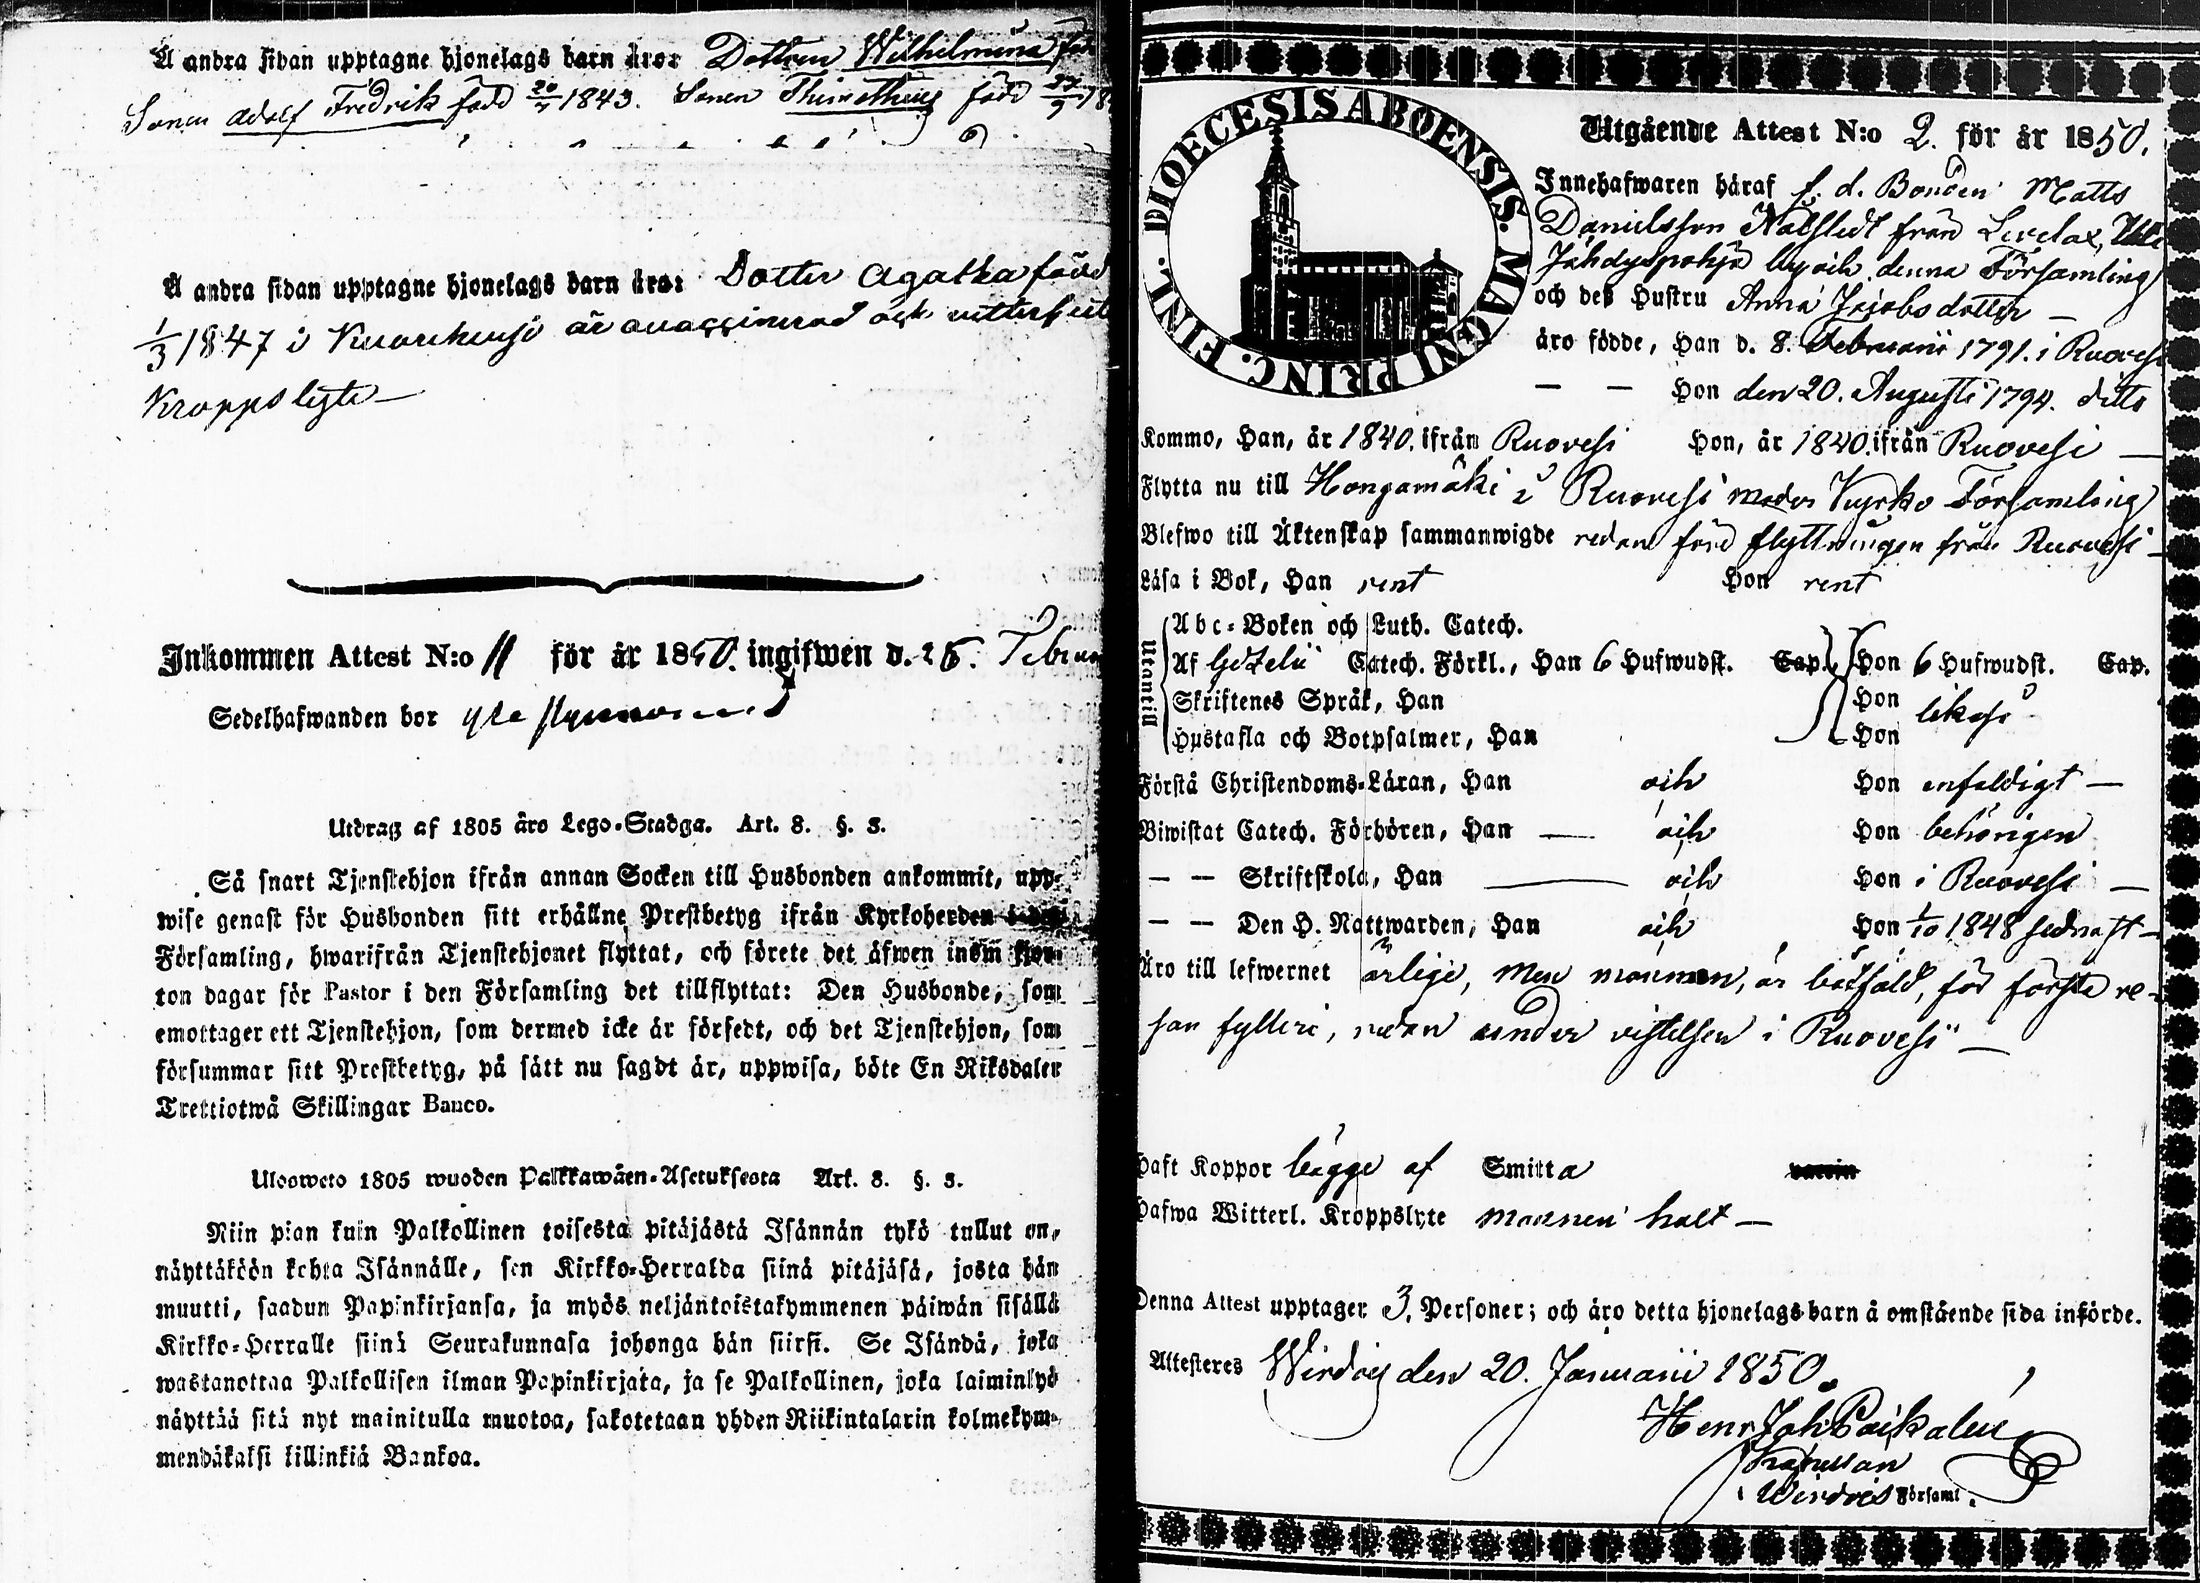 Å andra sidan upptagne hjonelags barn äro: Dottren Wilhelmina
Sonen Adolf Fredrik född 20/7 1843. Sonen Thimotheus född 27/9 18
Å andra sidan upptagne hjonelags barn äro: Dotter Agatha född
1/3 1847 i är vaccinerad och utterst
Kroppslyte —
Inkommen Attest N:o 11 för år 1850. ingifwen d. 26. Februa
Sedelhafwanden bor
Utdrag af 1805 års Lego-Stadga. Art. 8. §. 3.
Så snart Tjenstehjon ifrån annan Socken till Husbonden ankommit, upp-
wise genast för Husbonden sitt erhållne Prestbetyg ifrån Kyrkoherden i den
Församling, hwarifrån Tjenstehjonet flyttat, och förete det äfwen inom fjor-
ton dagar för Pastor i den Församling det tillflyttat: Den Husbonde, som
emottager ett Tjenstehjon, som dermed icke är försedt, och det Tjenstehjon, som
försummar sitt Prestbetyg, på sätt nu sagdt är, uppwisa, böte En Riksdaler
Trettiotwå Skillingar Banco.
Ulosweto 1805 wuoden Palkkawäen-Asetuksesta Art. 8. §. 3.
Niin pian kuin Palkollinen toisesta pitäjästä Isännän tykö tullut on,
näyttäköön kohta Isännälle, sen Kirkko-Herralda siinä pitäjäsä, josta hän
muutti, saadun Papinkirjansa, ja myös neljäntoistakymmenen päiwän sisällä
Kirkko-Herralle siinä Seurakunnasa johonga hän siirsi. Se Isändä, joka
wastanottaa Palkollisen ilman Papinkirjata, ja se Palkollinen, joka laiminlyö
näyttää sitä nyt mainitulla muotoa, sakotetaan yhden Riikintalarin kolmekym-
mendäkaksi killinkiä Bankoa.
DIOECESIS ABOENSIS. MAGNI PRINC. FINL.
Utgående Attest N:o 2. för år 1850.
Innehafwaren häraf f. d. Bonden Matts
Danielsson från
Jähdyspohja by och denna Församling
och deß Hustru Anna Jacobsdotter —
äro födde, Han d. 8. Februarii 1791. i Ruovesi
— — Hon den 20. Augusti 1794. ditto
Kommo, Han, år 1840. ifrån Ruovesi Hon, år 1840. ifrån Ruovesi —
Flytta nu till Hongamäki i Ruovesi moder Kyrko Församling
Blefwo till Äktenskap sammanwigde redan före flyttningen från Ruovesi —
Läsa i Bok, Han rent Hon rent
Utantill
Abc-Boken och Luth. Catech.
Af Gezelii Catech. Förkl., Han 6 Hufwudst. Cap. Hon 6 Hufwudst. Cap.
Skriftenes Språk, Han Hon likaså
Hustafla och Botpsalmer, Han Hon
Förstå Christendoms-Läran, Han och Hon enfaldigt —
Biwistat Catech. Förhören, Han — och Hon behörigen
— — Skriftskola, Han — och Hon i Ruovesi —
— — Den H. Nattwarden, Han och Hon 1/10 1848 sednast —
Äro till lefwernet ärlige, men mannen, är bötfäld, för första re-
san fylleri, redan under vistelsen i Ruovesi —
Haft Koppor bägge af Smitta vaccin
Hafwa Witterl. Kroppslyte mannen halt —
Denna Attest upptager 3. Personer; och äro detta hjonelags barn å omstående sida införde.
Attesteres Wirdois den 20. Januarii 1850.
Henr Joh
Kapellan
i Wirdois Församl.